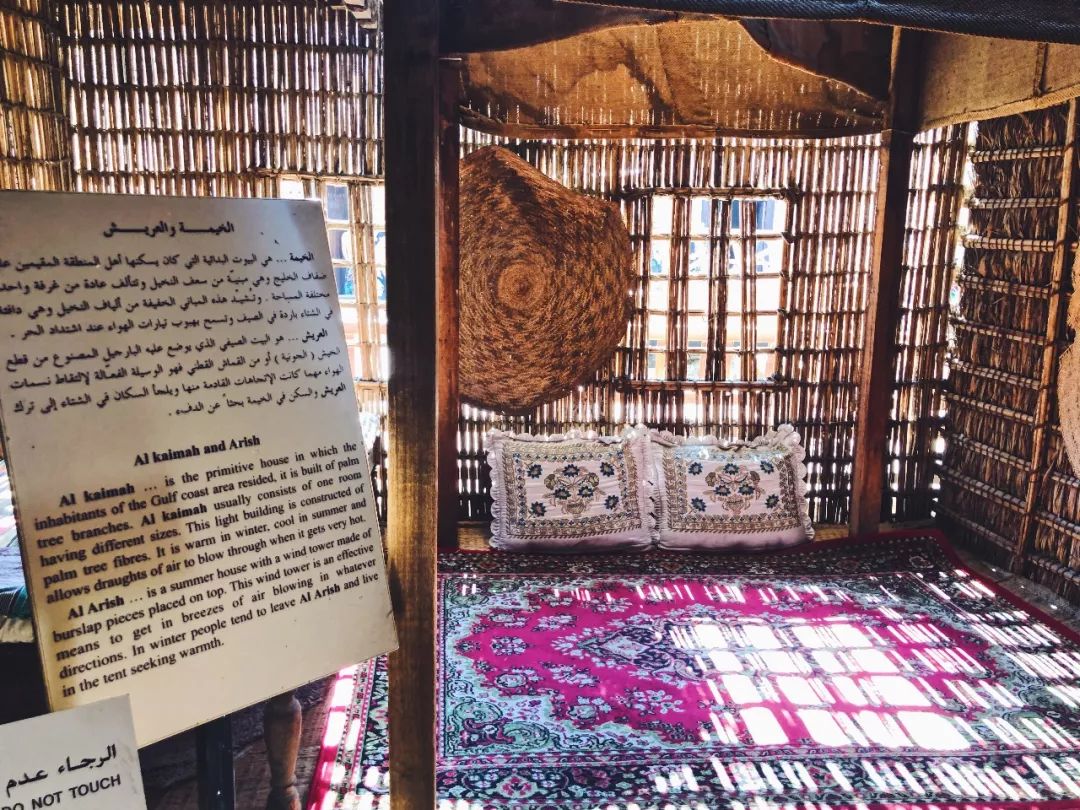 الخيمـة والعريـش
الخيمة ... هي البيوت البدائية التي كان يسكنها أهل المنطقة المقيمين على
ضفاف الخليج وهي مبنيّة من سعف النخيل وتتألف عادة من غرفة واحدة
مختلفة المساحة . وتشيّـد هذه المباني الخفيفة من ألياف النخيل وهي دافئة
في الشتاء باردة في الصيف وتسمح بهبوب تيارات الهواء عند اشتداد الحر .
العريش ... هو البيت الصيفي الذي يوضع عليه البارجيل المصنوع من قطع
الخيش ( الجونية ) أو من القماش القطني فهو الوسيلة الفعّالة لإلتقاط نسمات
الهواء مهما كانت الإتجاهات القادمة منها ويلجأ السكان في الشتاء إلى ترك
العريش والسكن في الخيمة بحثاً عن الدفء .
Al kaimah and Arish
Al kaimah ... is the primitive house in which the
inhabitants of the Gulf coast area resided, it is built of palm
tree branches. Al kaimah usually consists of one room
having different sizes. This light building is constructed of
palm tree fibres. It is warm in winter, cool in summer and
allows draughts of air to blow through when it gets very hot.
Al Arish ... is a summer house with a wind tower made of
burslap pieces placed on top. This wind tower is an effective
means to get in breezes of air blowing in whatever
directions. In winter people tend to leave Al Arish and live
in the tent seeking warmth.
الرجـاء عـدم
DO NOT TOUCH